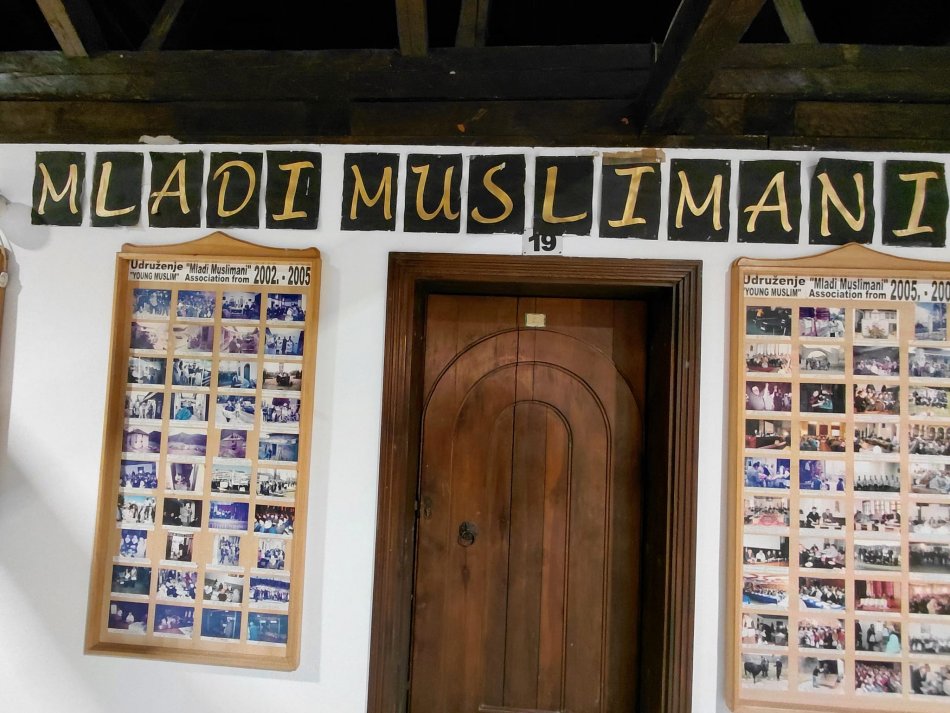 MLADI MUSLIMANI
19
Udruženje "Mladi Muslimani" 2002. - 2005
"YOUNG MUSLIM" Association from
Udruženje "Mladi Muslimani" 2005. - 200
"YOUNG MUSLIM" Association from